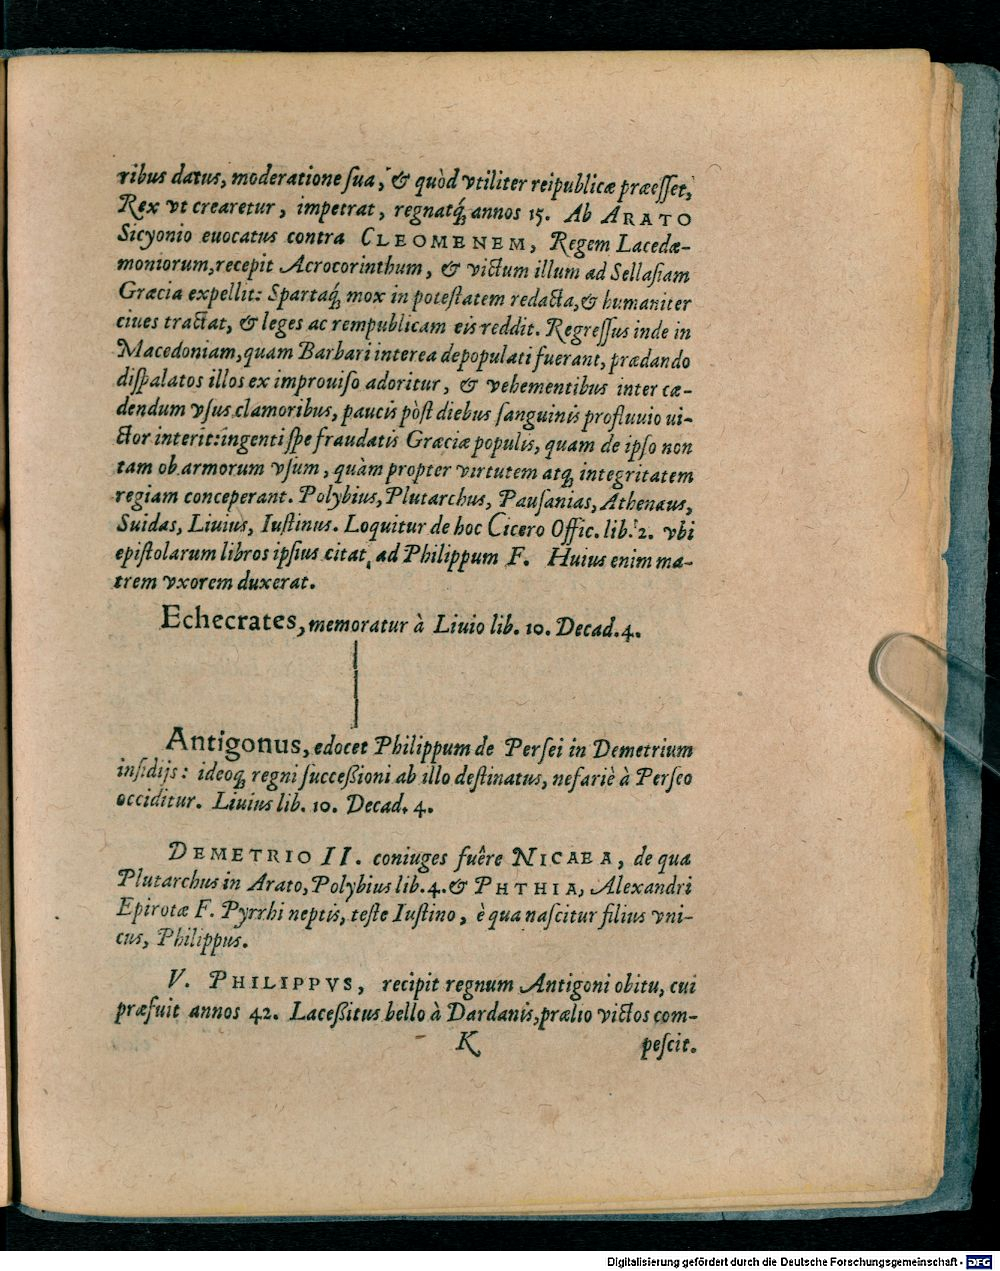 ribus datus, moderatione ſua, & quòd vtiliter reipublicæ præeſſet,
Rex vt crearetur, impetrat, regnatq́ annos 15. Ab ARATO
Sicyonio euocatus contra CLEOMENEM, Regem Lacedæ-
moniorum, recepit Acrocorinthum, & victum illum ad Sellaſiam
Græcia expellit: Spartaq́ mox in poteſtatem redacta, & humaniter
ciues tractat, & leges ac rempublicam eis reddit. Regreſſus inde in
Macedoniam, quam Barbari interea depopulati fuerant, prædando
diſpalatos illos ex improuiſo adoritur, & vehementibus inter cæ-
dendum vſus clamoribus, paucis pòſt diebus ſanguinis profluuio ui-
ctor interit: ingenti ſpe fraudatis Græciæ populis, quam de ipſo non
tam ob armorum vſum, quàm propter virtutem atq; integritatem
regiam conceperant. Polybius, Plutarchus, Pauſanias, Athenæus,
Suidas, Liuius, Iuſtinus. Loquitur de hoc Cicero Offic. lib. 2. vbi
epiſtolarum libros ipſius citat, ad Philippum F. Huius enim ma-
trem vxorem duxerat.
Echecrates, memoratur à Liuio lib. 10. Decad. 4.
Antigonus, edocet Philippum de Perſei in Demetrium
inſidijs: ideoq; regni ſucceßioni ab illo deſtinatus, nefariè à Perſeo
occiditur. Liuius lib. 10. Decad. 4.
DEMETRIO II. coniuges fuêre NICAEA, de qua
Plutarchus in Arato, Polybius lib. 4. & PHTHIA, Alexandri
Epirotæ F. Pyrrhi neptis, teſte Iuſtino, è qua naſcitur filius vni-
cus, Philippus.
V. PHILIPPVS, recipit regnum Antigoni obitu, cui
præfuit annos 42. Laceßitus bello à Dardanis, prælio victos com-
K peſcit.
Digitalisierung gefördert durch die Deutsche Forschungsgemeinschaft - DFG